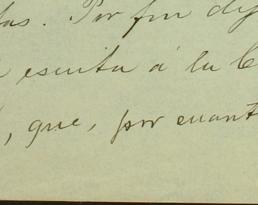 tas. Por fin dij
escrita á la C
, que, por cuant